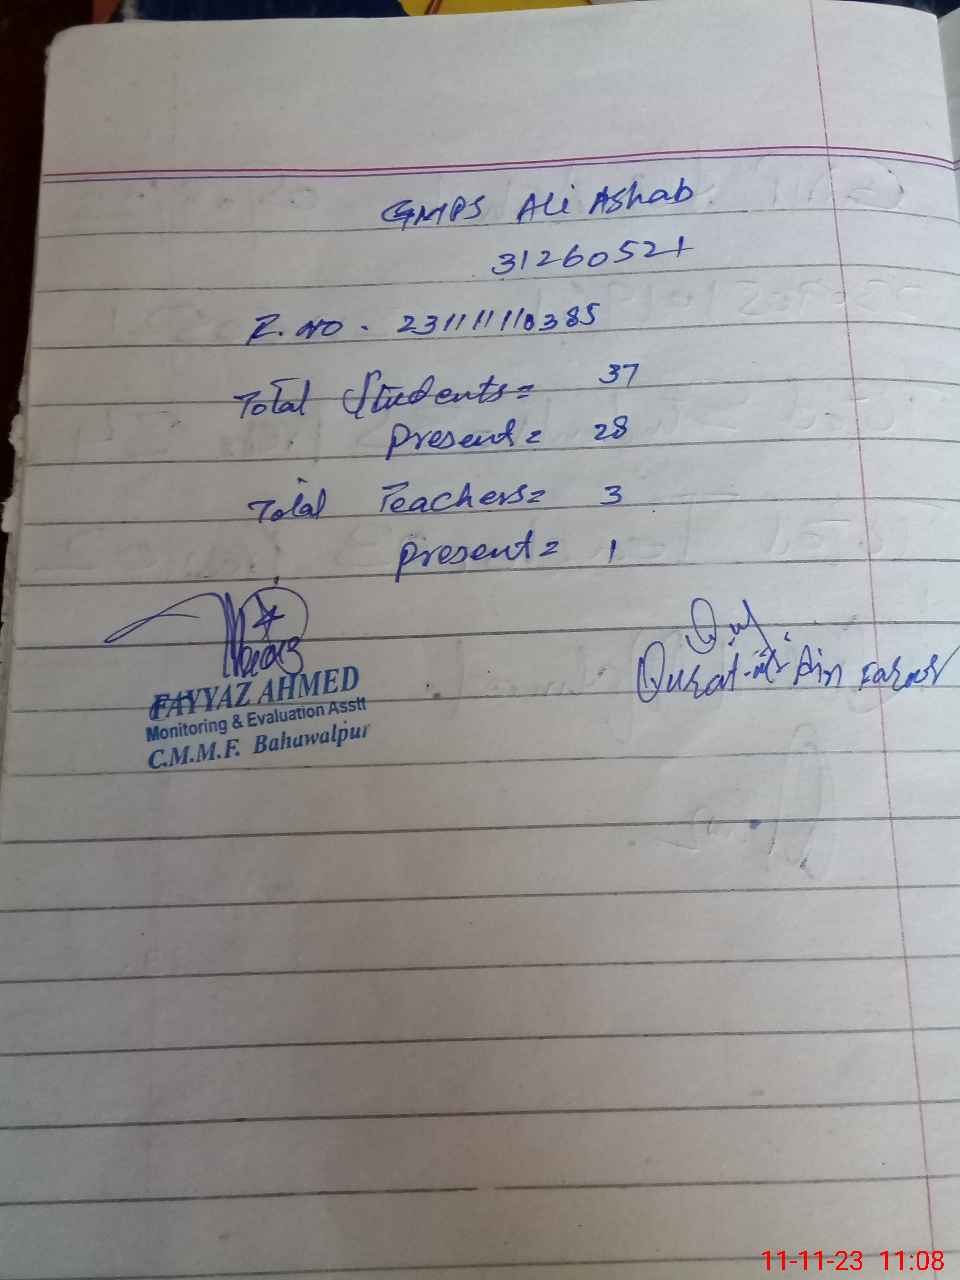 GMPS Ali Ashab
31260521
R.NO. 231111110385
Total Students= 37
Present= 28
Total Teachers= 3
Present= 1
FAYYAZ AHMED
Monitoring & Evaluation Asstt
C.M.M.F. Bahawalpur
Qurat-ul-Ain
11-11-23 11:08